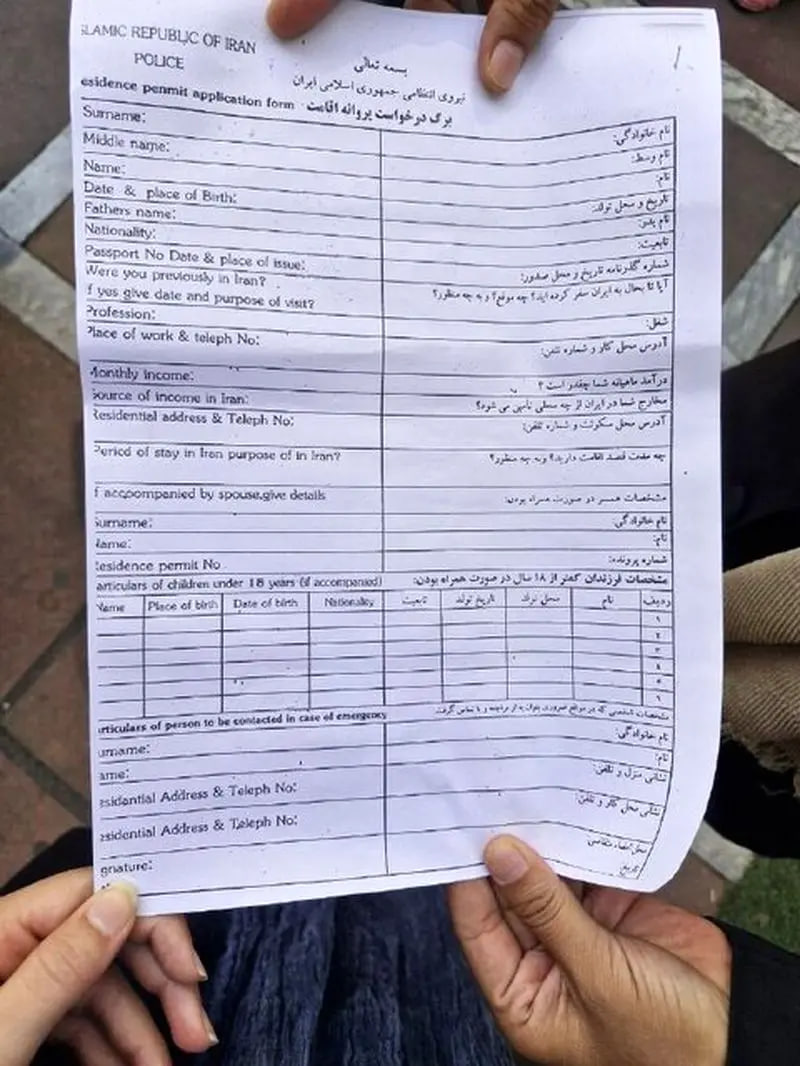 SLAMIC REPUBLIC OF IRAN
POLICE
بسمه تعالی
نیروی انتظامی جمهوری اسلامی ایران
esidence penmit application form برگ درخواست پروانه اقامت
Surname: نام خانوادگی:
Middle name: نام وسط:
Name: نام:
Date & place of Birth: تاریخ و محل تولد:
Fathers name: نام پدر:
Nationality: تابعیت:
Passport No Date & place of issue: شماره گذرنامه تاریخ و محل صدور:
Were you previously in Iran? آیا تا بحال به ایران سفر کرده اید؟ چه موقع؟ و به چه منظور؟
f yes give date and purpose of visit?
Profession: شغل:
Place of work & teleph No: آدرس محل کار و شماره تلفن:
Monthly income: درآمد ماهیانه شما چقدر است ؟
Source of income in Iran: مخارج شما در ایران از چه محلی تأمین می شود؟
Residential address & Teleph No: آدرس محل سکونت و شماره تلفن:
Period of stay in Iran purpose of in Iran? چه مدت قصد اقامت دارید؟ و به چه منظور؟
f accompanied by spouse,give details مشخصات همسر در صورت همراه بودن:
Surname: نام خانوادگی:
Name: نام:
esidence permit No شماره پرونده:
articulars of children under 18 years (if accompanied) مشخصات فرزندان کمتر از ۱۸ سال در صورت همراه بودن:
Name Place of birth Date of birth Nationality تابعیت تاریخ تولد محل تولد نام ردیف
۱
۲
۳
۴
۵
۶
articulars of person to be contacted in case of emergency مشخصات شخصی که در مواقع ضروری بتوان با او تماس گرفت.
urname: نام خانوادگی:
ame: نام:
esidential Address & Teleph No: نشانی منزل و تلفن:
esidential Address & Teleph No: نشانی محل کار و تلفن:
gnature: محل امضاء متقاضی:
تاریخ